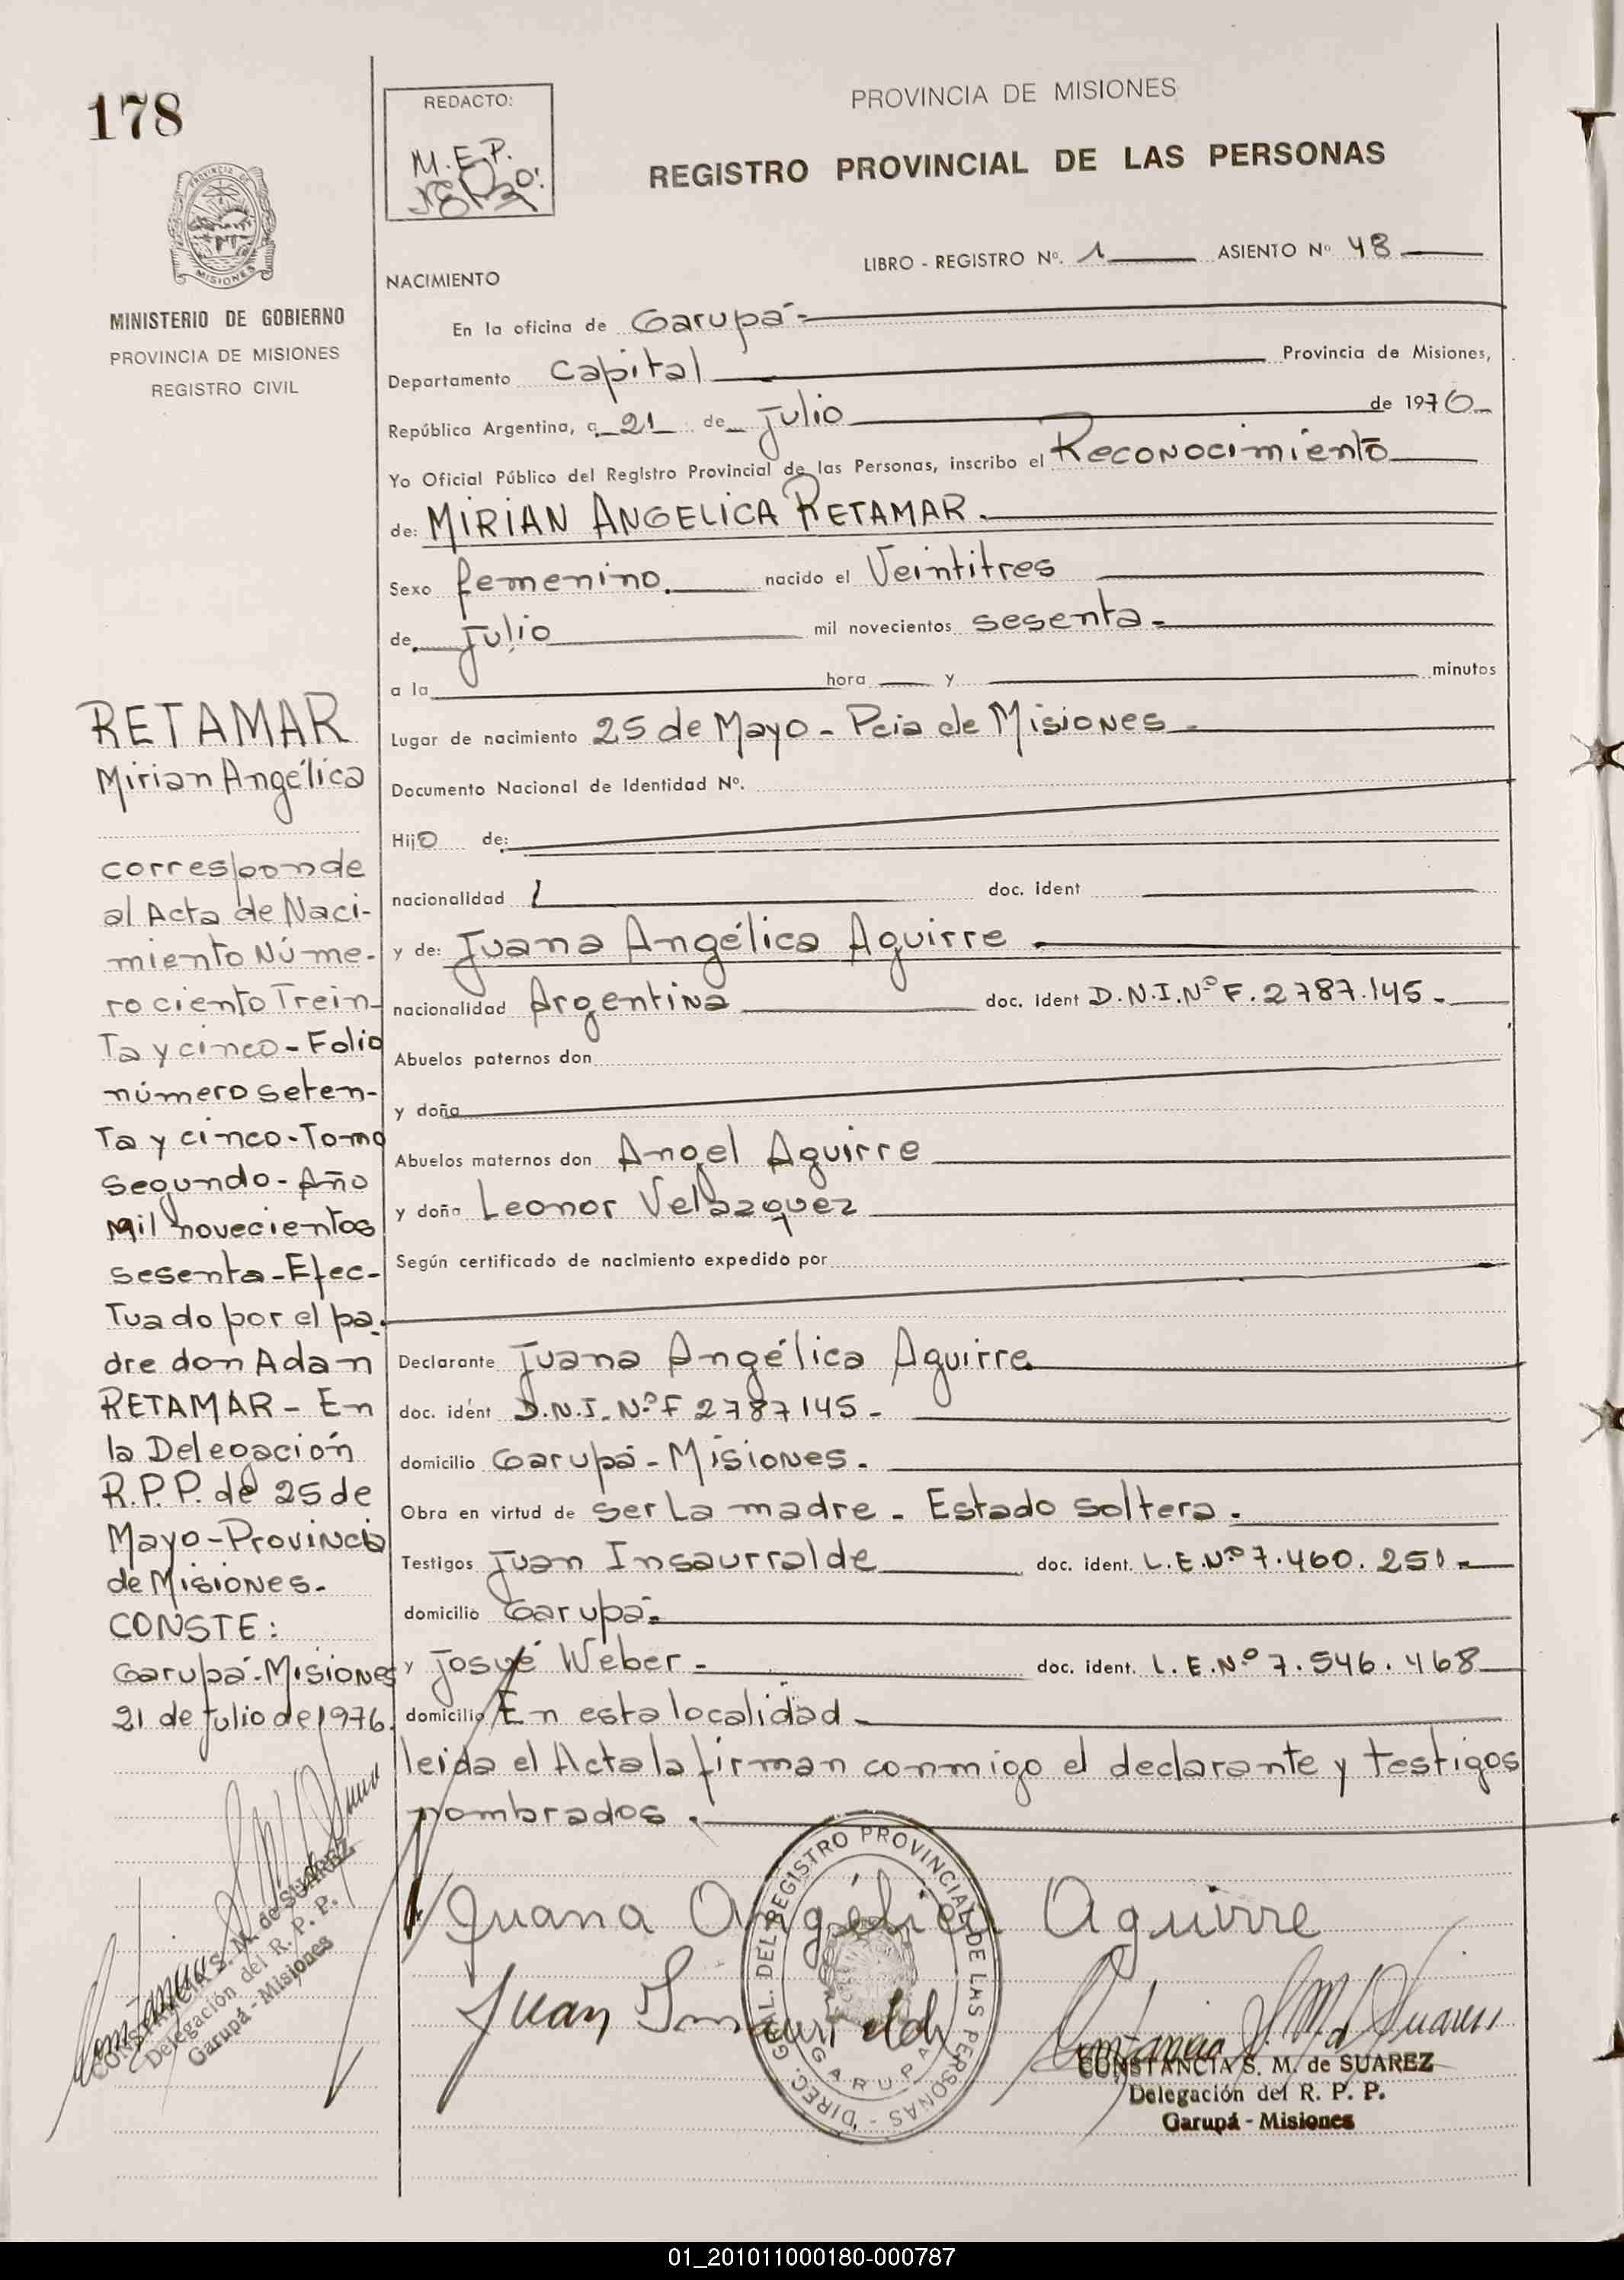 178
REDACTO:
M.E.P.
PROVINCIA DE MISIONES
REGISTRO PROVINCIAL DE LAS PERSONAS
PROVINCIA DE
MISIONES
MINISTERIO DE GOBIERNO
PROVINCIA DE MISIONES
REGISTRO CIVIL
NACIMIENTO
LIBRO - REGISTRO Nº. 1 ASIENTO Nº 48
En la oficina de Garupá -
Departamento Capital Provincia de Misiones,
República Argentina, a 21 de Julio de 1976
Yo Oficial Público del Registro Provincial de las Personas, inscribo el Reconocimiento
de: MIRIAN ANGELICA RETAMAR.
Sexo femenino. nacido el Veintitres
de Julio mil novecientos sesenta -
a la hora y minutos
Lugar de nacimiento 25 de Mayo - Pcia de Misiones -
Documento Nacional de Identidad Nº.
Hijo de:
nacionalidad doc. ident
y de: Juana Angélica Aguirre -
nacionalidad Argentina doc. ident D.N.I.Nº F. 2787.145 -
Abuelos paternos don
y doña
Abuelos maternos don Angel Aguirre
y doña Leonor Velazquez
Según certificado de nacimiento expedido por
Declarante Juana Angélica Aguirre
doc. idént D.N.I. Nº F 2787145 -
domicilio Garupá - Misiones -
Obra en virtud de ser La madre - Estado soltera -
Testigos Juan Insaurralde doc. ident. L.E.Nº 7.460.251 -
domicilio Garupá -
y Josué Weber - doc. ident. L.E.Nº 7.546.468
domicilio En esta localidad -
leida el Acta la firman conmigo el declarante y testigos
nombrados -
RETAMAR
Mirian Angélica
corresponde
al Acta de Naci-
miento Núme-
ro ciento Trein-
Ta y cinco - Folio
número seten-
Ta y cinco - Tomo
Segundo - Año
Mil novecientos
sesenta - Efec-
Tuado por el pa-
dre don Adan
RETAMAR - En
la Delegación
R.P.P. de 25 de
Mayo - Provincia
de Misiones -
CONSTE:
Garupá - Misiones
21 de Julio de 1976.
CONSTANCIA S. M. de SUAREZ
Delegación del R. P. P.
Garupá - Misiones
Juana Angélica Aguirre
Juan Insaurralde
DIREC. GRAL. DEL REGISTRO PROVINCIAL DE LAS PERSONAS -
GARUPA
CONSTANCIA S. M. de SUAREZ
Delegación del R. P. P.
Garupá - Misiones
01_201011000180-000787